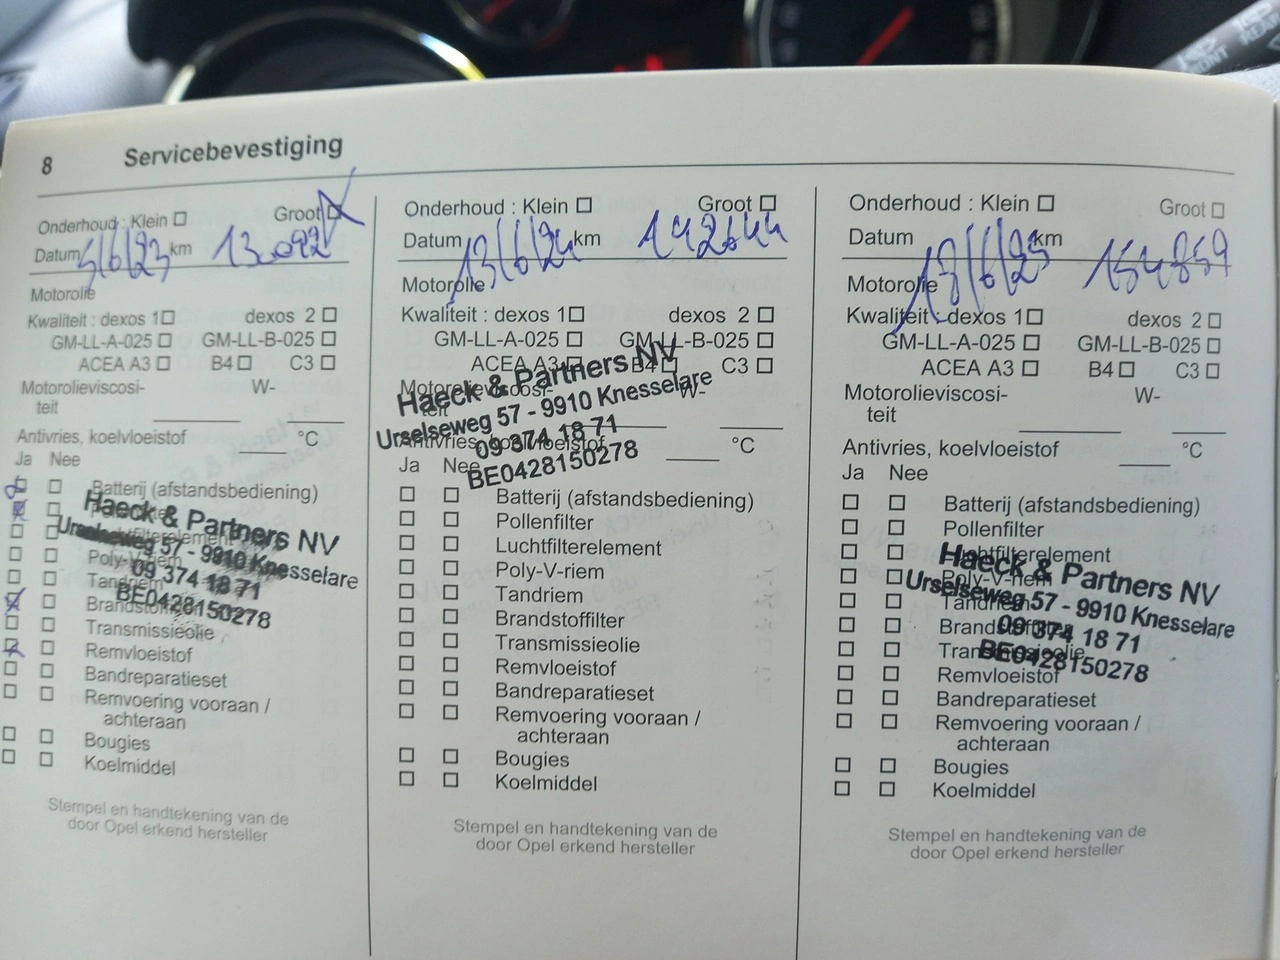 8 Servicebevestiging
Onderhoud : Klein ☐ Groot ☒
Datum 5/6/23 km 130092
Motorolie
Kwaliteit : dexos 1 ☐ dexos 2 ☐
GM-LL-A-025 ☐ GM-LL-B-025 ☐
ACEA A3 ☐ B4 ☐ C3 ☐
Motorolieviscosi- W-
teit
Antivries, koelvloeistof °C
Ja Nee
Batterij (afstandsbediening)
Haeck & Partners NV
Urselseweg 57 - 9910 Knesselare
09 374 18 71
BE0428150278
Poly-V-riem
Tandriem
Brandstoffilter
Transmissieolie
Remvloeistof
Bandreparatieset
Remvoering vooraan /
achteraan
Bougies
Koelmiddel
Stempel en handtekening van de
door Opel erkend hersteller
Onderhoud : Klein ☐ Groot ☐
Datum 13/6/24 km 142644
Motorolie
Kwaliteit : dexos 1 ☐ dexos 2 ☐
GM-LL-A-025 ☐ GM-LL-B-025 ☐
ACEA A3 ☐ B4 ☐ C3 ☐
Motorolieviscosi- W-
teit
Haeck & Partners NV
Urselseweg 57 - 9910 Knesselare
09 374 18 71
BE0428150278
Antivries, koelvloeistof °C
Ja Nee
Batterij (afstandsbediening)
Pollenfilter
Luchtfilterelement
Poly-V-riem
Tandriem
Brandstoffilter
Transmissieolie
Remvloeistof
Bandreparatieset
Remvoering vooraan /
achteraan
Bougies
Koelmiddel
Stempel en handtekening van de
door Opel erkend hersteller
Onderhoud : Klein ☐ Groot ☐
Datum 18/6/25 km 154859
Motorolie
Kwaliteit : dexos 1 ☐ dexos 2 ☐
GM-LL-A-025 ☐ GM-LL-B-025 ☐
ACEA A3 ☐ B4 ☐ C3 ☐
Motorolieviscosi- W-
teit
Antivries, koelvloeistof °C
Ja Nee
Batterij (afstandsbediening)
Pollenfilter
Luchtfilterelement
Haeck & Partners NV
Urselseweg 57 - 9910 Knesselare
09 374 18 71
BE0428150278
Poly-V-riem
Tandriem
Brandstoffilter
Transmissieolie
Remvloeistof
Bandreparatieset
Remvoering vooraan /
achteraan
Bougies
Koelmiddel
Stempel en handtekening van de
door Opel erkend hersteller